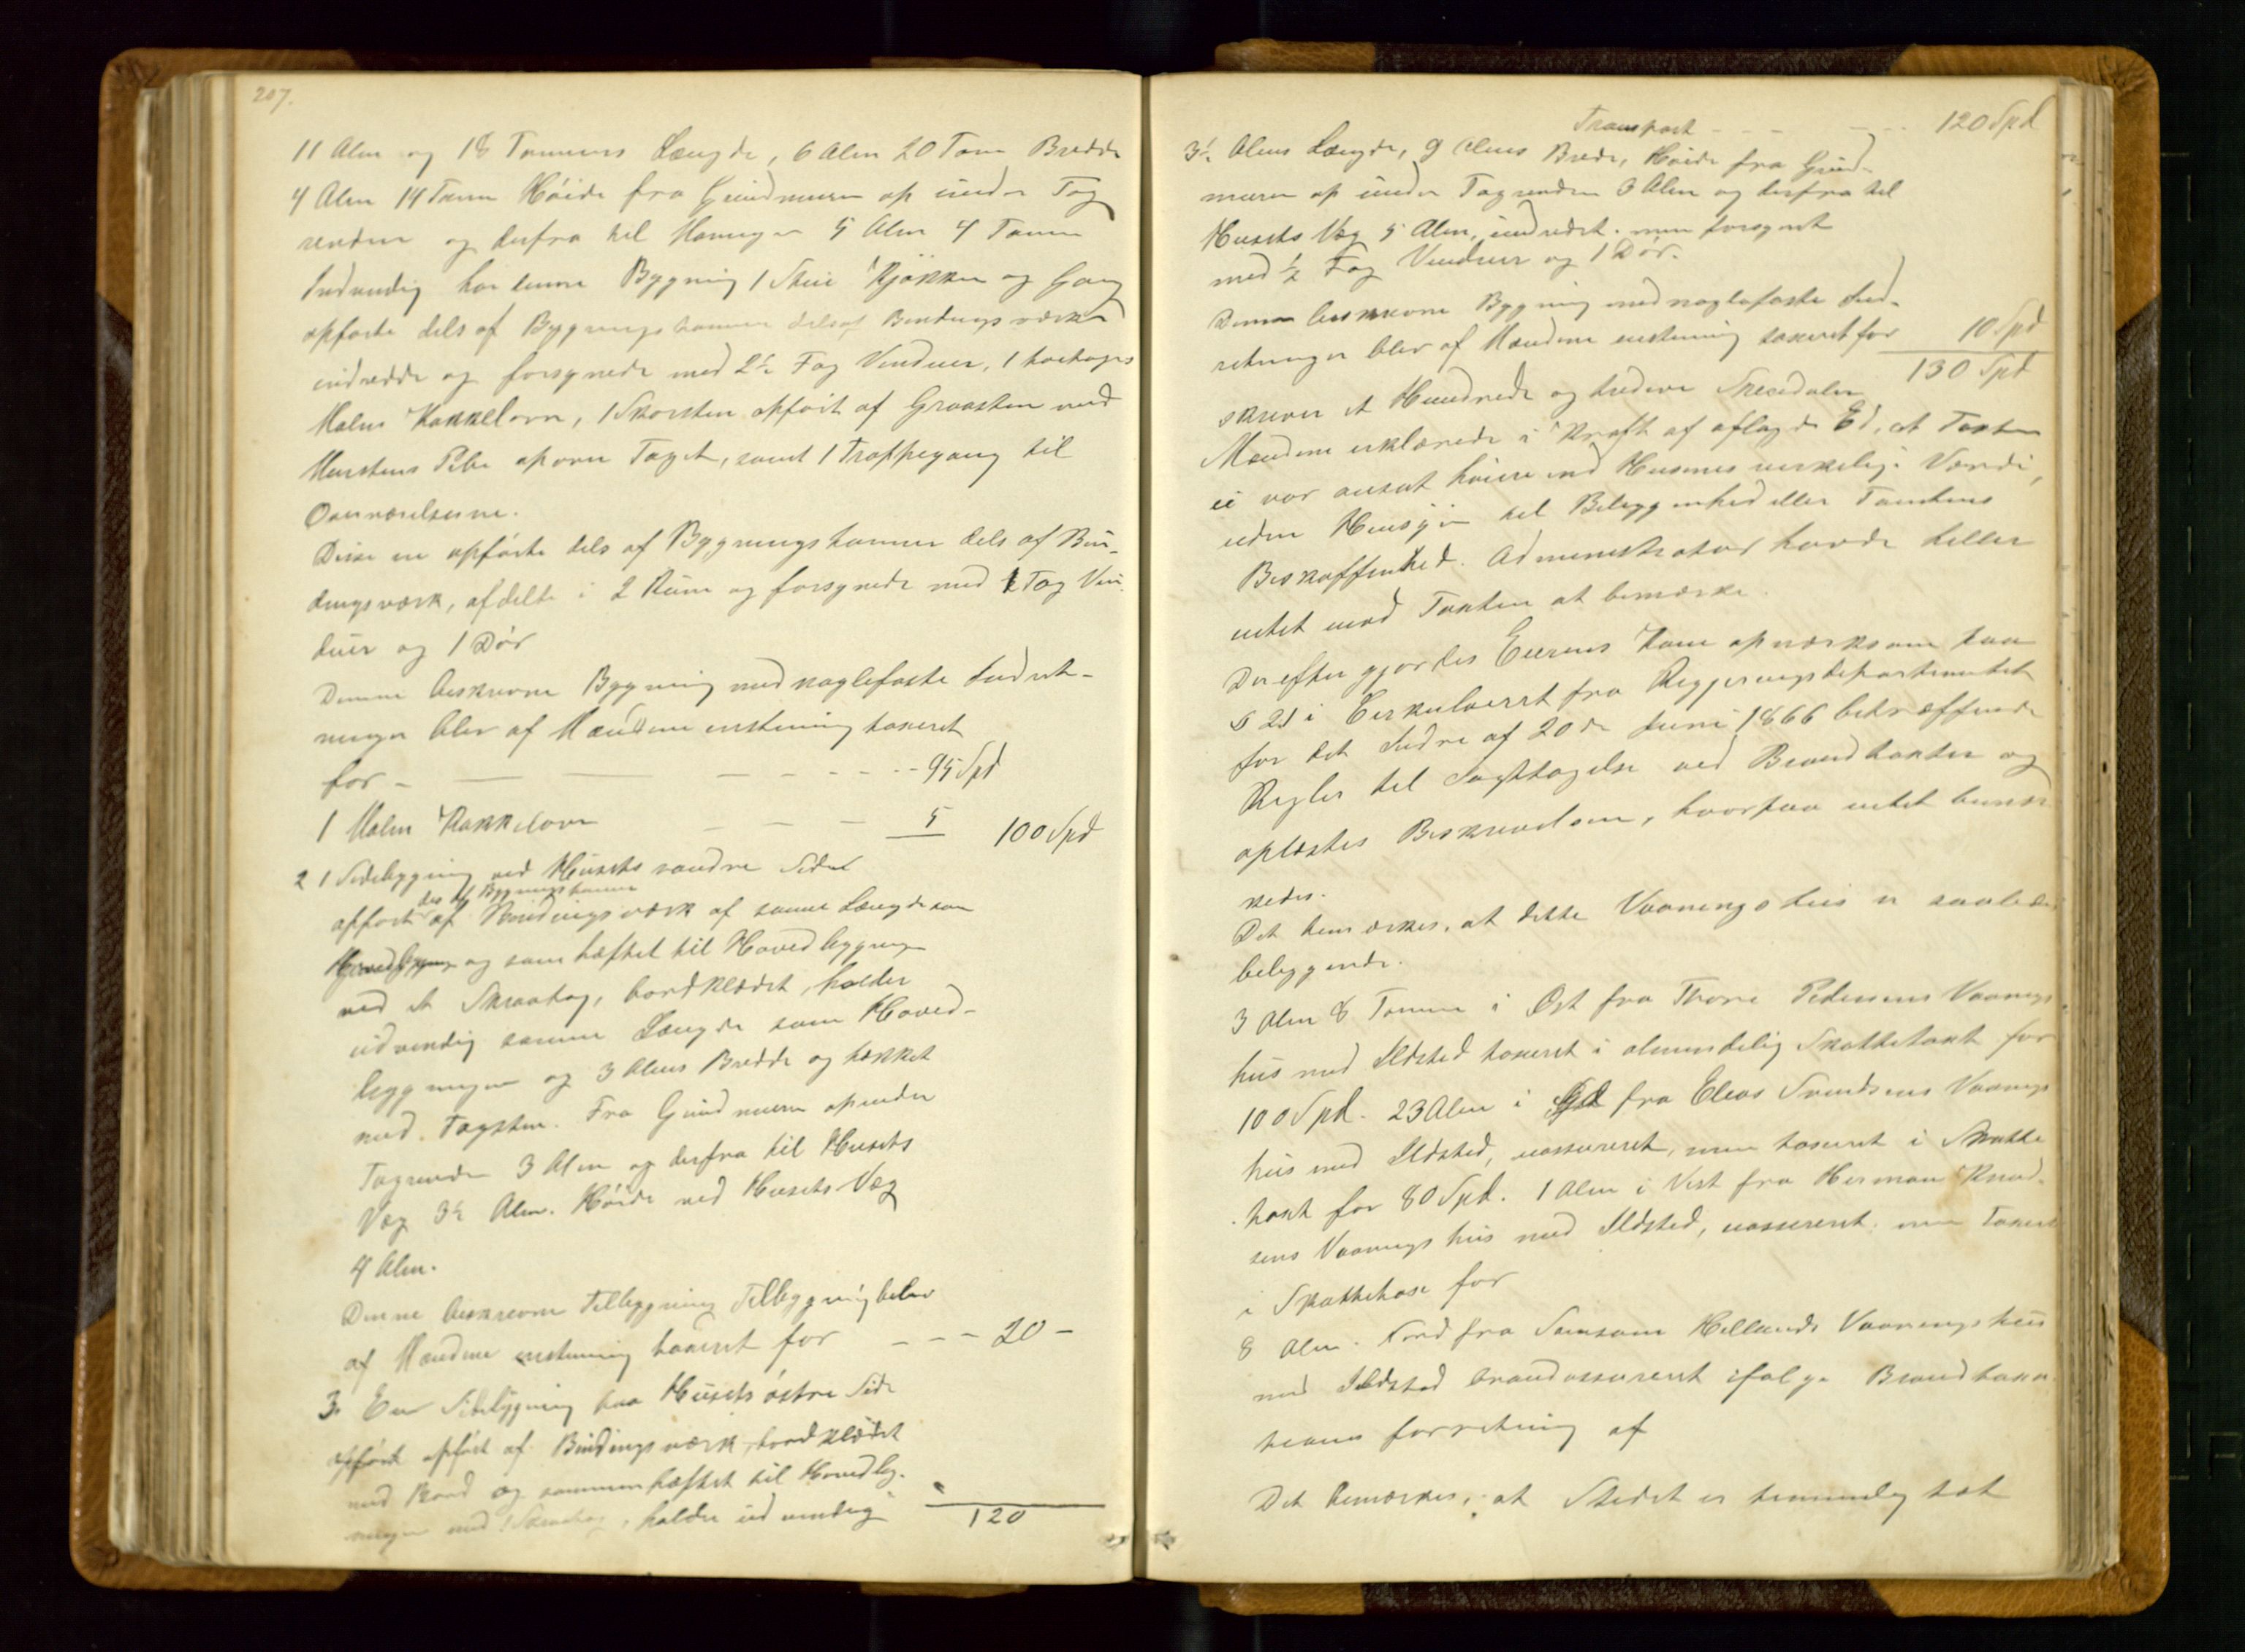 207.
11 Alen og 18 Tommers Længde, 6 Alen 20 Tom Bredde
4 Alen 14 Tomm Høide fra Grundmuren op under Tag
renden og derfra til Mønngen 5 Alen 4 Tomm
Indvendig har denne Bygning 1 Stue Kjøkken og Gang
opførte dels af Bygningstømmer dels af Bindingsværk
indredde og forsynede med 2½ Fag Vinduer, 1 toetages
Malm Kakkelovn, 1 Skorsten opført af Graasten med
Murstens Pibe oporer Taget, samt 1 Trappegang til
Overværelserne.
Disse ere opførte dels af Bygningstømmer dels af Bin-
dingsværk, afdelte i 2 Rum og forsynede med 1 Fag Vin-
duer og 1 Dør
Denne beskrevne Bygning med naglefaste Indret-
ninger blev af Mændene enstemmig taxeret
for - - - - - 95 Spd
1 Malm Kakkelovn - - - 5 100 Spd
2 1 Sidebygning ved Husets søndre Side
dels af Bygningstømmer
opført af Bindingsværk af samme Længde som
Hovedbygning og sam hæftet til Hovedbygningen
ved et Skraatag, bordklædet, holder
udvendig samme Længde som Hoved-
bygningen og 3 Alens Bredde og tækket
med Tagsten. Fra Grundmuren op under
Tagrenden 3 Alen og derfra til Husets
Væg 3½ Alen. Høide ved Husets Væg
4 Alen.
Denne beskrevne Tilbygning Tilbygning belev
af Mændene enstemmig taxeret for - - - 20 -
3. En Sidebygning paa Husets østre Side
opført opført af Bindingsværk, bordklædet
med Bord og sammenhæftet til Hovedbyg-
ningen med Skraatag, holder udvendig
120
Transport - - - 120 Spd
3½ Alens Længde, 9 Alens Brede, Høide fra Grund-
muren op under Tagrenden 3 Alen og derfra til
Husets Væg 5 Alen, indredet. men forsynet
med ½ Fag Vinduer og 1 Dør.
Denne beskrevne Bygning med naglefaste Ind-
retninger blev af Mændene enstemmig taxeret for 10 Spd
130 Spd
skriver et Hundrede og tredeve Speciedaler
Mændene erklærede i Kraft af aflagde Ed, at Taxten
ei var ansat høiere end Husenes virkelige Værdi,
uden Hensyn til Beliggenhed eller Tomtens
Beskaffenhed. Administrator havde heller
intet mod Taxten at bemærke.
Derefter gjordes Eierens Kone opmærksom paa
§ 21 i Cirkulæret fra Regjeringsdepartementet
for det Indre af 20de Juni 1866 betræffende
Regler til Iagttagelse ved Brandtaxter og
oplæstes Beskrivelsen, hvorpaa intet bemær
kedes.
Det bemærkes, at dette Vaaningshus er saaledes
beliggende.
3 Alen 8 Tomme i Øst fra Thore Pedersens Vaanings
hus med Ildsted taxeret i almindelig Skattetaxt for
100 Spd. 23 Alen i Syd fra Elias Svendsens Vaanings
hus med Ildsted, uassureret, men taxeret i Skatte
taxt for 80 Spd. 1 Alen i Vest fra Herman Knud-
sens Vaaningshus med Ildsted, uassureret men Taxeret
i Skattetaxt for
8 Alen i Nord fra Samson Hellands Vaaningshus
med Ildsted brandassureret ifølge Brandtaxa
tions forretning af
Det bemærkes, at Stedet er temmelig tæt